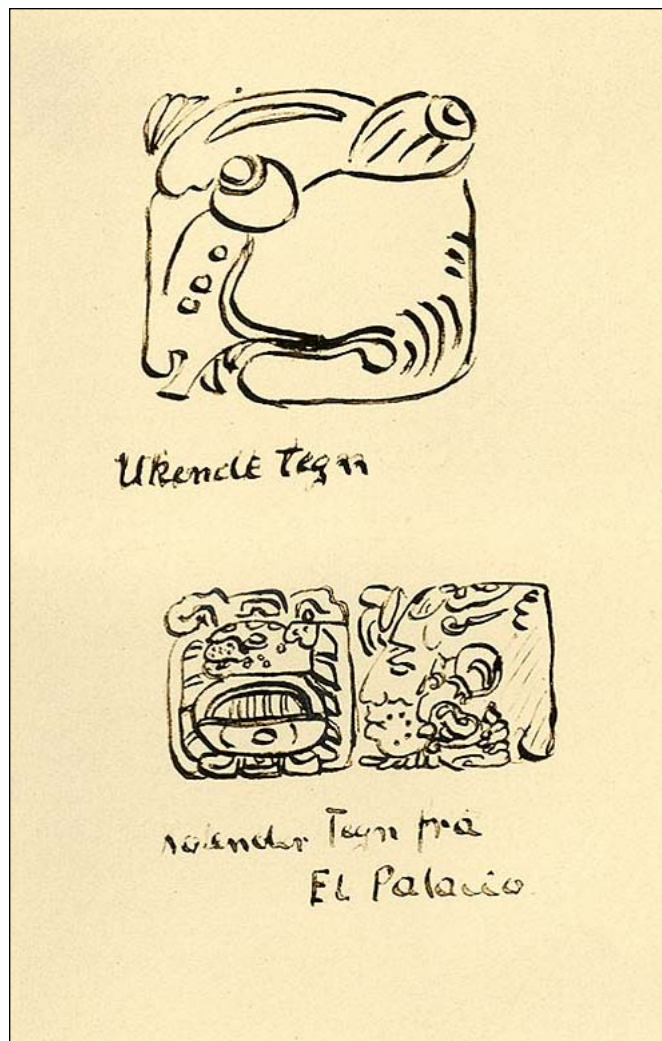 Ukendt Tegn
Kalender Tegn fra
El Palacio